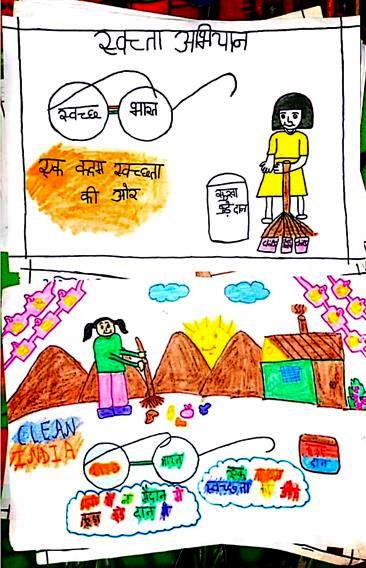 स्वच्ता अभियान
स्वच्छ भारत
एक कदम स्वच्छता
की ओर
दान
CLEAN
INDIA
भारत
दान
एक कदम
स्वच्छता की ओर
ना मैदान में
दान में